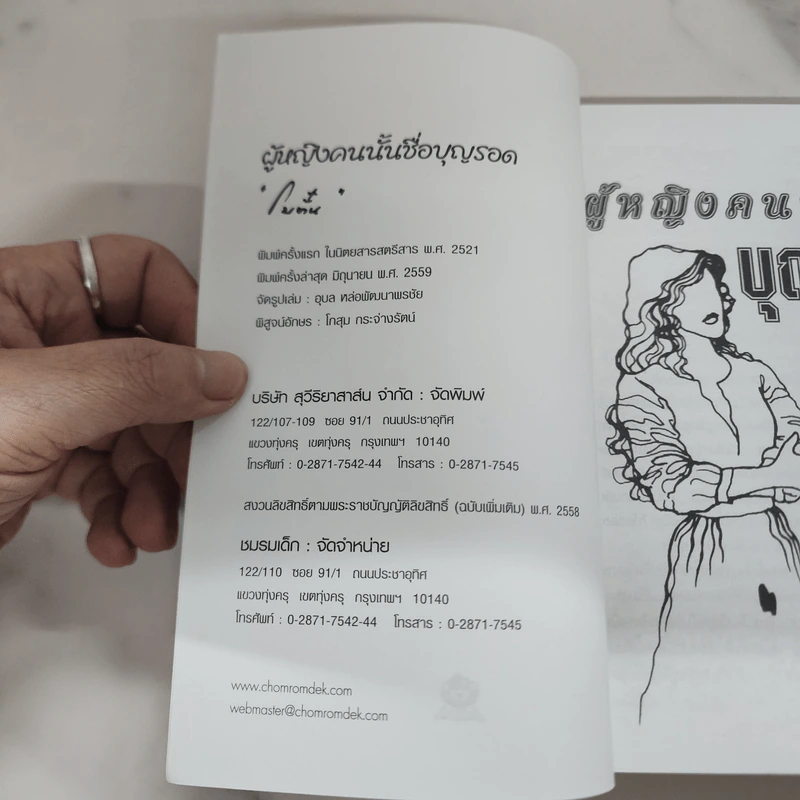 ผู้หญิงคนนั้นชื่อบุญรอด
"โบตั๋น"
พิมพ์ครั้งแรก ในนิตยสารสตรีสาร พ.ศ. 2521
พิมพ์ครั้งล่าสุด มิถุนายน พ.ศ. 2559
จัดรูปเล่ม : อุบล หล่อพัฒนาพรชัย
พิสูจน์อักษร : โกสุม กระจ่างรัตน์
บริษัท สุวีริยาสาส์น จำกัด : จัดพิมพ์
122/107-109 ซอย 91/1 ถนนประชาอุทิศ
แขวงทุ่งครุ เขตทุ่งครุ กรุงเทพฯ 10140
โทรศัพท์ : 0-2871-7542-44 โทรสาร : 0-2871-7545
สงวนลิขสิทธิ์ตามพระราชบัญญัติลิขสิทธิ์ (ฉบับเพิ่มเติม) พ.ศ. 2558
ชมรมเด็ก : จัดจำหน่าย
122/110 ซอย 91/1 ถนนประชาอุทิศ
แขวงทุ่งครุ เขตทุ่งครุ กรุงเทพฯ 10140
โทรศัพท์ : 0-2871-7542-44 โทรสาร : 0-2871-7545
www.chomromdek.com
webmaster@chomromdek.com
ผู้หญิงคน
บุญ